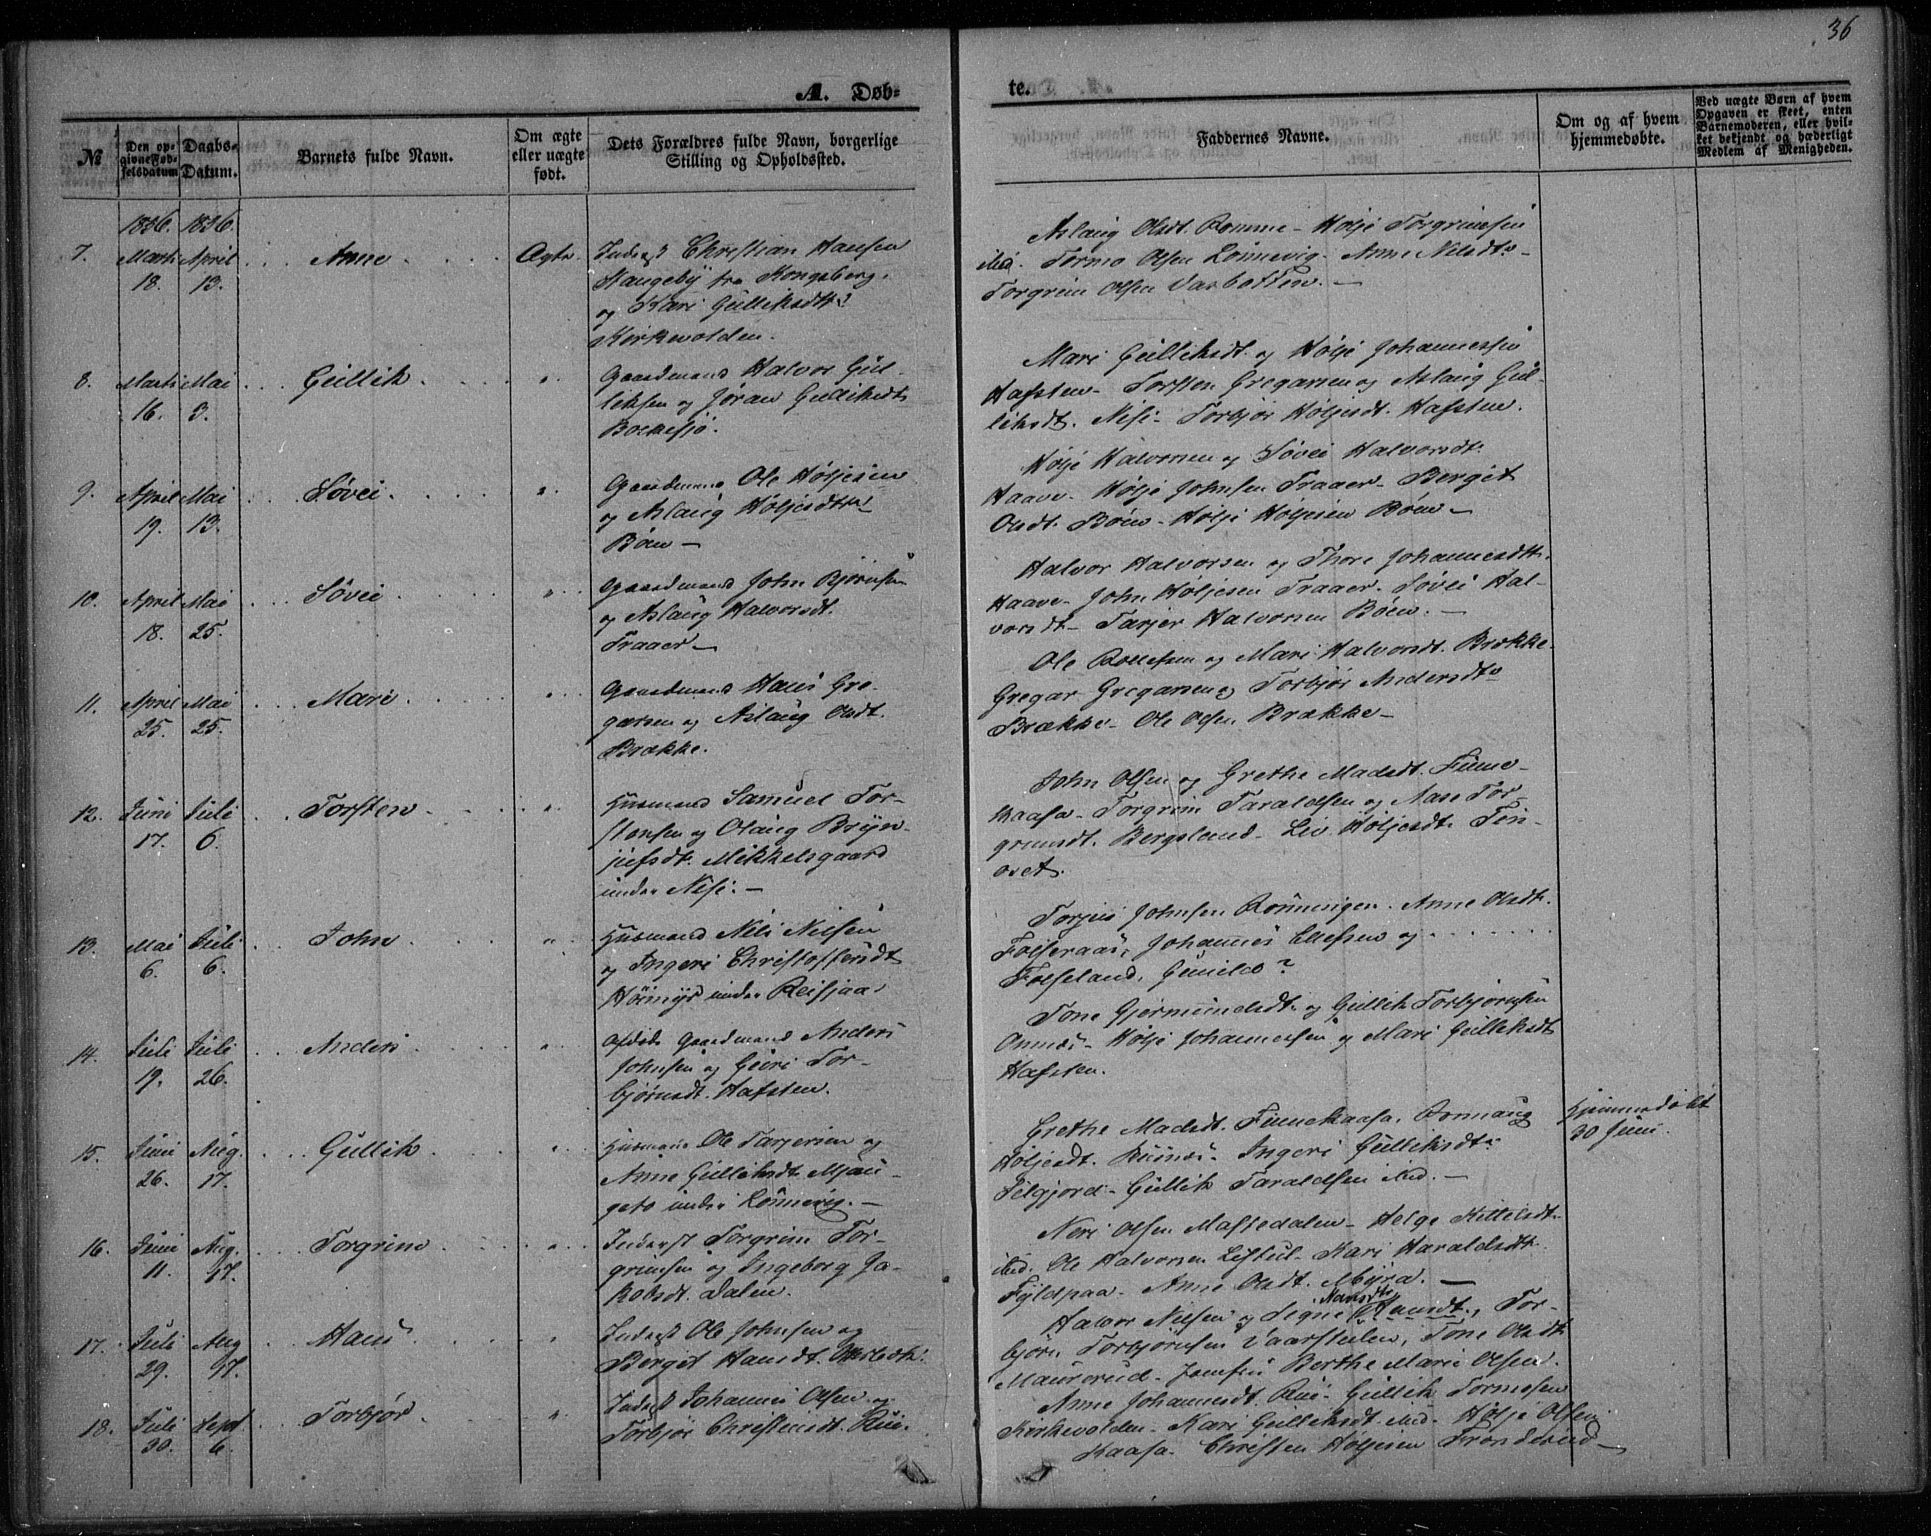 36
A. Døb-
te.
№
Den op-
givne Fød-
selsdatum
Daabs-
Datum.
Barnets fulde Navn.
Om ægte
eller uægte
født.
Dets Forældres fulde Navn, borgerlige
Stilling og Opholdssted.
Faddernes Navne.
Om og af hvem
hjemmedøbte.
Ved uægte Børn af hvem
Opgaven er skeet, enten
Barnemoderen, eller hvil-
ket bekjendt og hæderligt
Medlem af Menigheden.
1836. 1836.
7. Marti 18. April 13. Anne Ægte.
Inderst Christian Hansen
Haugeby fra Kongsberg.
og Kari Gulliksdtr
Kirkevolden.
Aslaug Olsdt. Romme - Hølje Torgrimsen
ibid. Tormo Olsen Lonnevig. Anne Nilsdtr
Torgrim Olsen Varbotten. -
8. Marti 16. Mai 3. Gullik "
Gaardmand Halvor Gul-
liksen og Jøran Gulliksdt
Bolkesjø.
Mari Gulliksdt. og Hølje Johannessen
Hafsten - Torsten Gregarsen og Aslaug Gul-
liksdt. Nisi - Torbjør Høljesdt. Hafsten.
9. April 19. Mai 13. Søvei "
Gaardmand Ole Høljesen
og Aslaug Høljesdtr
Bøen -
Hølje Halvorsen og Søvei Halvorsdt.
Haave - Hølje Johnsen Traaer - Bergit
Olsdt. Bøen - Hølje Høljesen Bøen -
10. April 18. Mai 25. Søvei "
Gaardmand John Bjørnsen
og Aslaug Halvorsdt.
Traaer -
Halvor Halvorsen og Thore Johannesdtr.
Haave - John Høljesen Traaer. Søvei Hal-
vorsdt - Tarjer Halvorsen Bøen. -
11. April 25. Mai 25. Mari "
Gaardmand Hans Gre-
garsen og Aslaug Olsdt.
Brække.
Ole Rollefsen og Mari Halvorsdt. Brække.
Gregar Gregarsen og Torbjør Andersdtr
Brække - Ole Olsen Brække -
12. Juni 17. Juli 6. Torsten "
Husmand Samuel Tor-
stensen og Olaug Bryn-
julfsdt. Mikkelsgaard
under Nisi. -
John Olsen og Grethe Madsdt. Finne-
kaasa - Torgrim Taraldsen og Aase Tor-
grimsdt. Bergsland - Liv Høljesdt. Tin-
oset.
13. Mai 6. Juli 6. John "
Husmand Nils Nilsen
og Ingeri Christoffersdt
under Reisjaa.
Torjus Johnsen Rønningen. Anne Olsdt.
Folseraas, Johannes Ellefsen og
Folseland, Gunild?
14. Juli 19. Juli 26. Anders "
Afdøde Gaardmand Anders
Johnsen og Guri Tor-
bjørnsdt. Hafsten.
Tone Gjermundsdt. og Gullik Torbjørnsen
Hølje Johannessen og Mari Gulliksdt
Hafsten.
15. Juni 26. Aug. 17. Gullik "
Husmand Ole Tarjersen og
Anne Gulliksdt. Mjau-
geto under Lonnevig. -
Grethe Madsdt. Finnekaasa. Ronnaug
Høljesdt. Ingeri Gulliksdtr
Gullik Taraldsen ibid. -
Hjemmedøbt
30 Juni.
16. Juni 11. Aug. 17. Torgrim "
Inderst Torgrim Tor-
grimsen og Ingeborg Ja-
kobsdt. Dalen.
Neri Olsen Mastedalen - Helge Kittilsdt.
ibid. Ole Halvorsen Listul - Kari Haraldsdt.
Fyldpaa - Anne Olsdt. Myra. -
17. Juli 29. Aug 17. Hans "
Inderst Ole Johnsen og
Bergit Hansdt.
Halvor Nielsen og Signe Hansdt., Tor-
Nansdtr
bjørn Torbjørnsen Vaarstulen, Tone Olsdt
Maurerud - Jomfru Berthe Marie Olsen.
18. Juli 30. Sept. 6. Torbjør "
Inderst Johannes Olsen og
Torbjør Christensdt. Rui.
Anne Johannesdt. Rui - Gullik Tormosen
Kirkevolden - Kari Gulliksdt. ibid. Hølje Olsen
Kaasa. Christen Høljesen Tronderud -